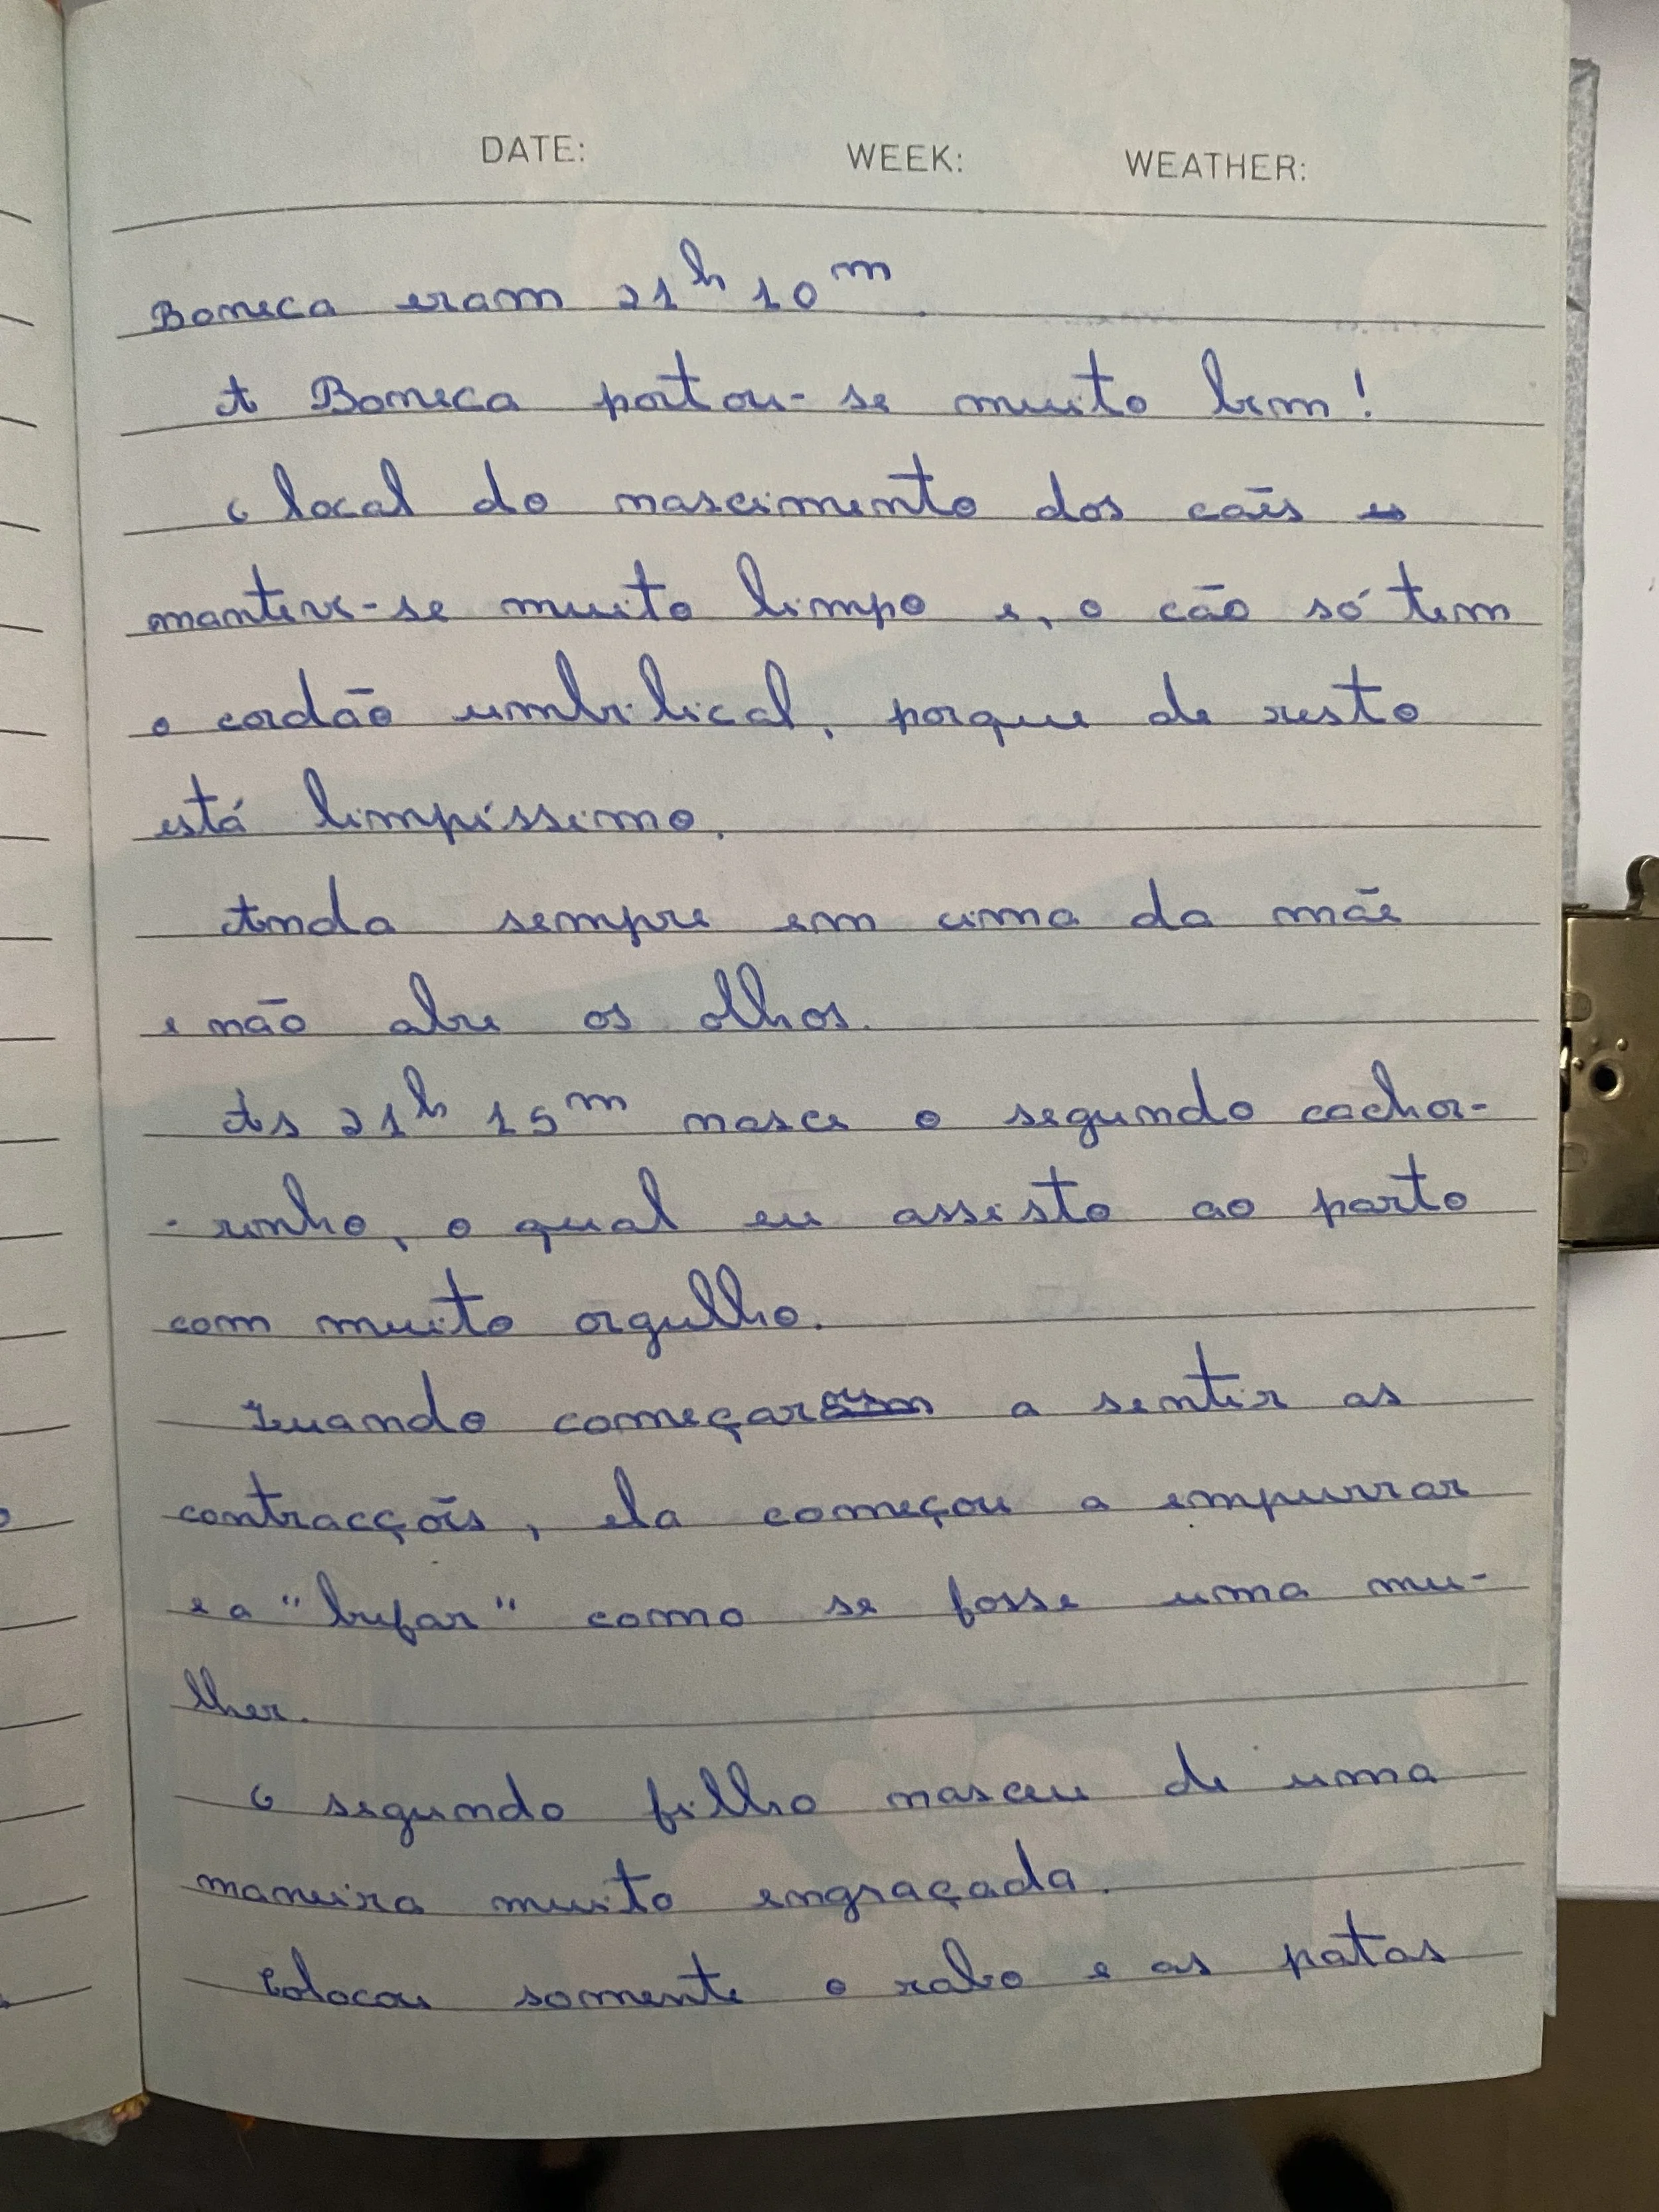 DATE: WEEK: WEATHER:
Boneca eram 21h 10m.
A Boneca portou-se muito bem!
O local do nascimento dos cães
manteve-se muito limpo e, o cão só tem
o cordão umbilical, porque de resto
está limpíssimo.
Anda sempre em cima da mãe
e não abre os olhos.
As 21h 15m nasce o segundo cachor-
-rinho, o qual eu assisto ao parto
com muito orgulho.
Quando começar a sentir as
contracções, ela começou a empurrar
e a "bufar" como se fosse uma mu-
lher.
O segundo filho nasceu de uma
maneira muito engraçada.
Colocou somente o rabo e as patas